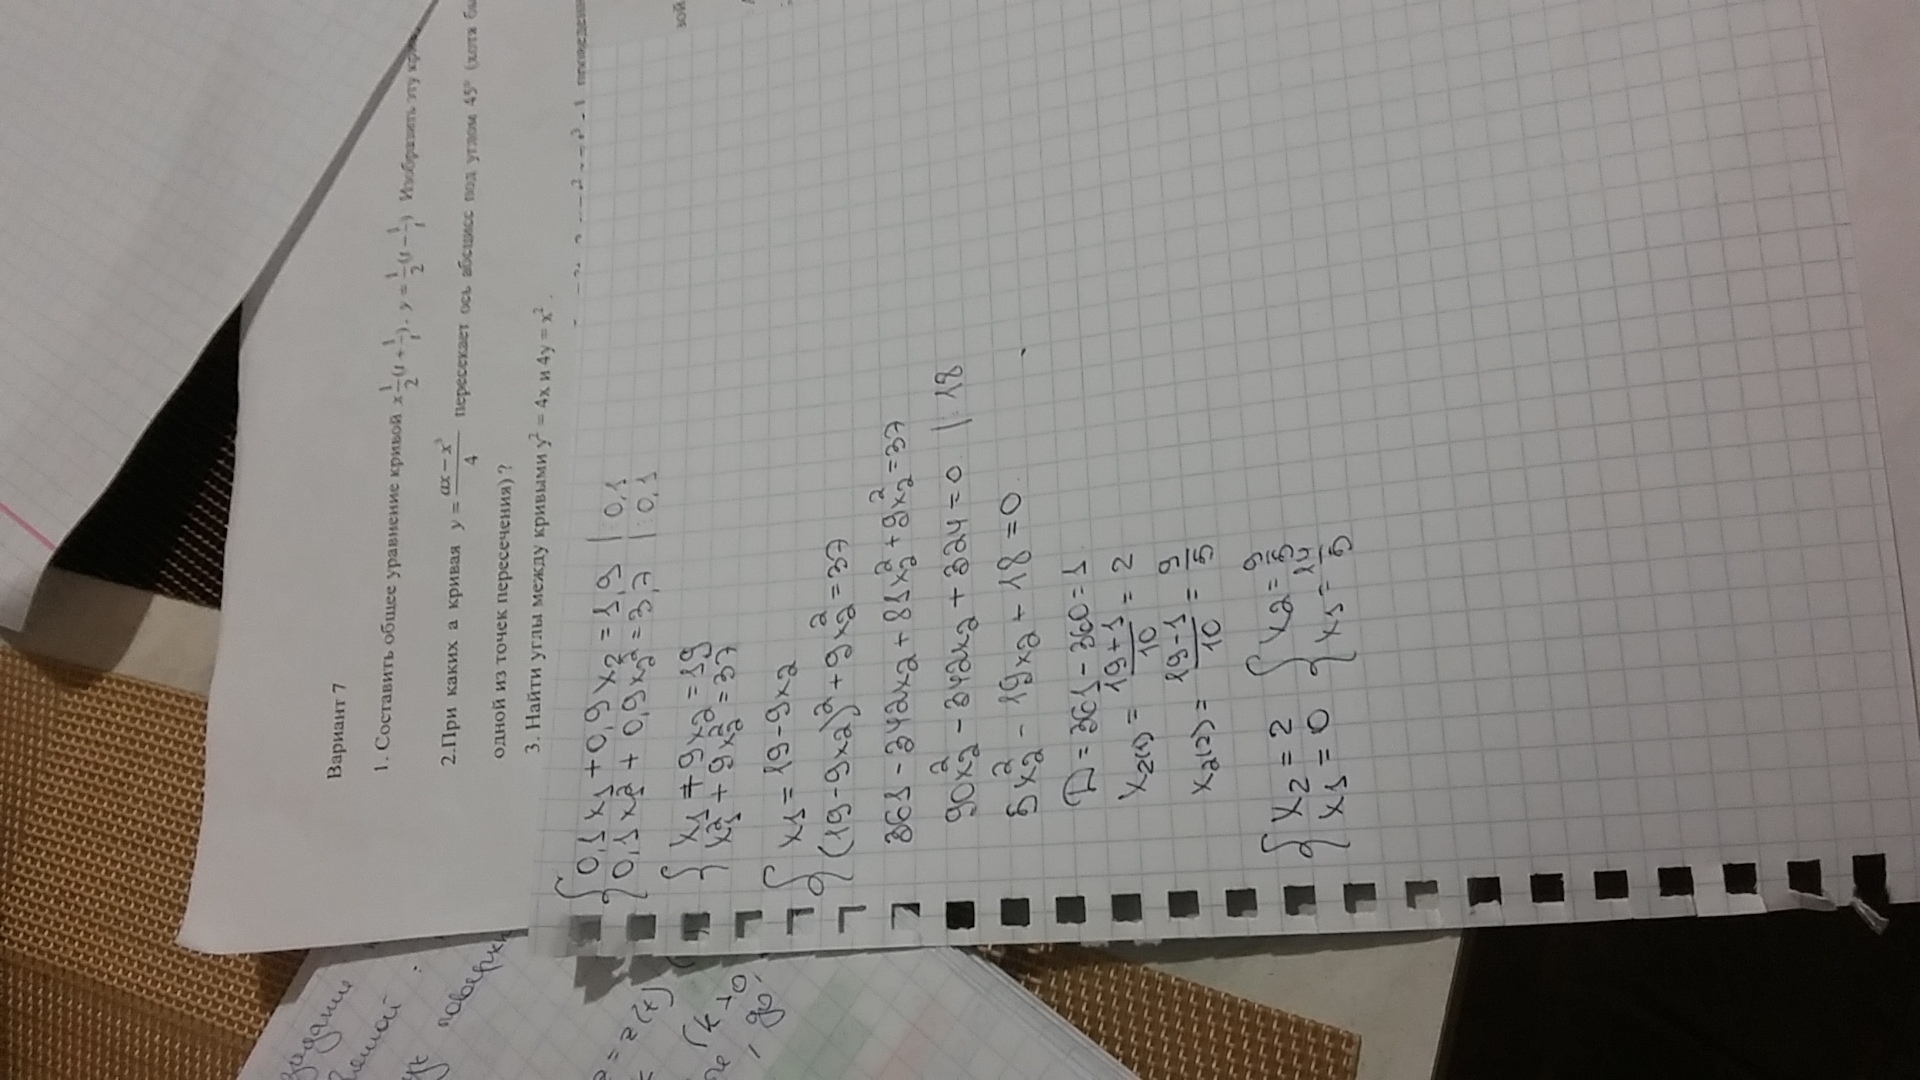 Вариант 7
1. Составить общее уравнение кривой x 1/2 (t + 1/t), y = 1/2 (t − 1/t) Изобразить эту
2.При каких a кривая y = (ax − x³)/4 пересекает ось абсцисс под углом 45° (хотя
одной из точек пересечения) ?
3. Найти углы между кривыми y² = 4x и 4y = x² .
{ 0,1 x₁ + 0,9 x₂ = 1,9 | : 0,1
0,1 x₁² + 0,9 x₂² = 3,7 | : 0,1
{ x₁ + 9x₂ = 19
x₁² + 9x₂² = 37
{ x₁ = 19 - 9x₂
(19 - 9x₂)² + 9x₂² = 37
361 - 342x₂ + 81x₂² + 9x₂² = 37
90x₂² - 342x₂ + 324 = 0 | : 18
5x₂² - 19x₂ + 18 = 0
D = 361 - 360 = 1
x₂₍₁₎ = (19+1)/10 = 2
x₂₍₂₎ = (19-1)/10 = 9/5
{ x₂ = 2 { x₂ = 9/5
x₁ = 0 x₁ = 14/5
задание
поверх
= z(x)